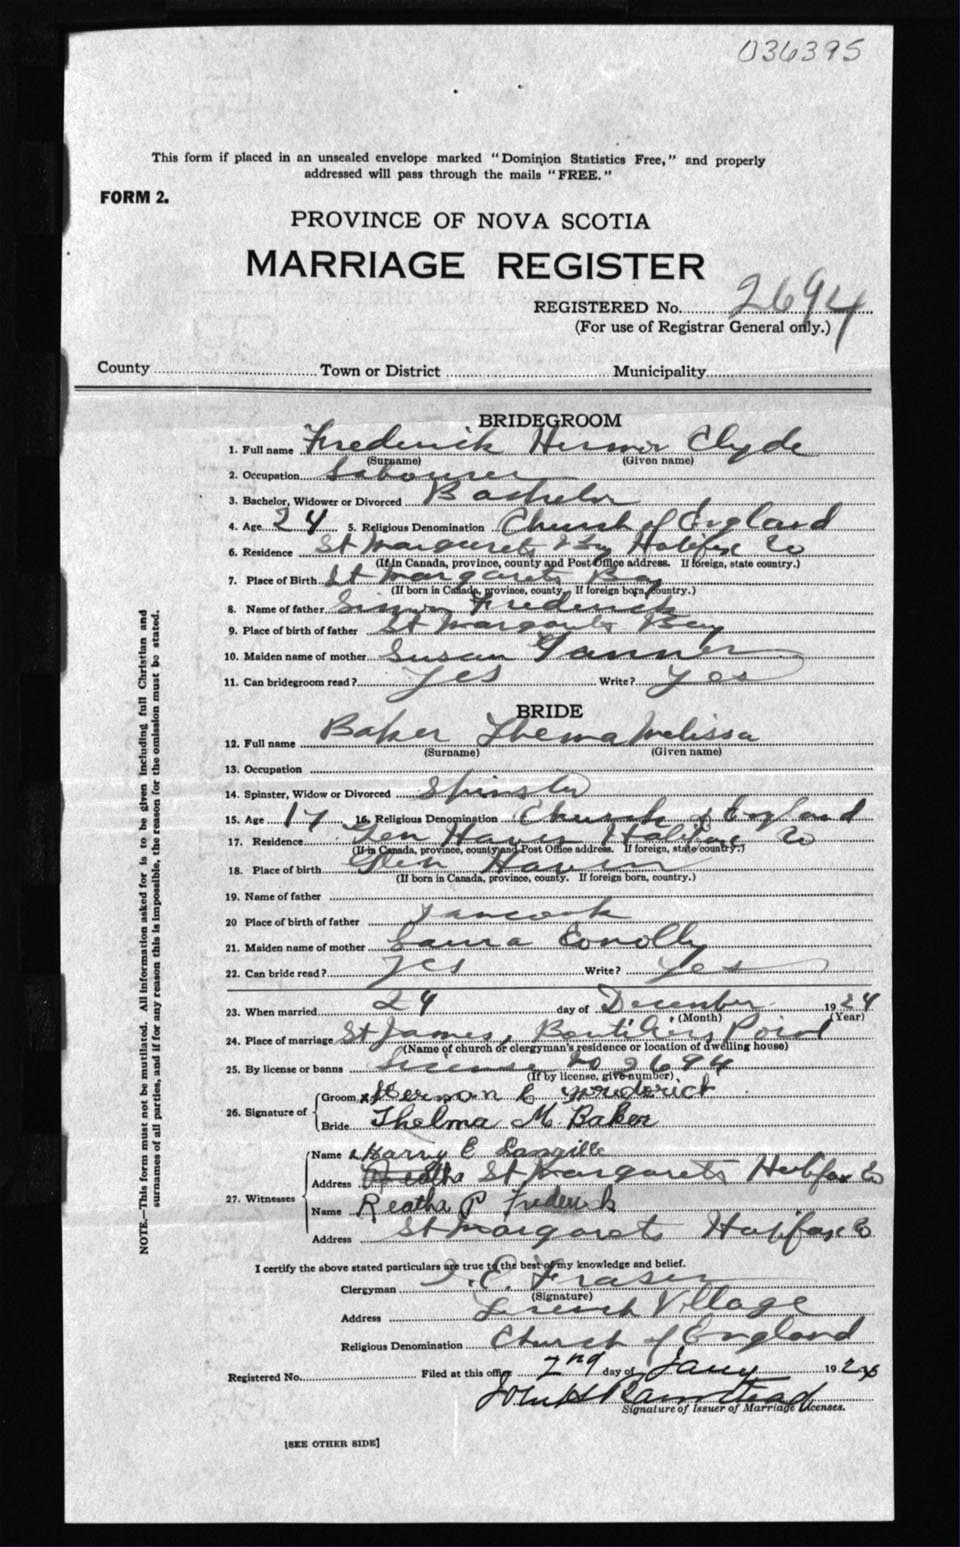 036395
This form if placed in an unsealed envelope marked "Dominion Statistics Free," and properly
addressed will pass through the mails "FREE."
FORM 2.
PROVINCE OF NOVA SCOTIA
MARRIAGE REGISTER
REGISTERED No. 2694
(For use of Registrar General only.)
County Town or District Municipality
BRIDEGROOM
1. Full name Frederick Clyde
(Surname) (Given name)
2. Occupation Labourer
3. Bachelor, Widower or Divorced Bachelor
4. Age 24 5. Religious Denomination Church of England
6. Residence St Margarets Bay Halifax Co
(If in Canada, province, county and Post Office address. If foreign, state country.)
7. Place of Birth St Margarets Bay
(If born in Canada, province, county. If foreign born, country.)
8. Name of father Frederick
9. Place of birth of father St Margarets Bay
10. Maiden name of mother Susan
11. Can bridegroom read? Yes Write? yes
BRIDE
12. Full name Baker Thema Melissa
(Surname) (Given name)
13. Occupation
14. Spinster, Widow or Divorced Spinster
15. Age 17 16. Religious Denomination Church of England
17. Residence Glen Haven Halifax Co
(If in Canada, province, county and Post Office address. If foreign, state country.)
18. Place of birth Glen Haven
(If born in Canada, province, county. If foreign born, country.)
19. Name of father
20 Place of birth of father Tancook
21. Maiden name of mother Laura Conolly
22. Can bride read? Yes Write? yes
23. When married 24 day of December 1924
(Month) (Year)
24. Place of marriage St James, Boutiliers Point
(Name of church or clergyman's residence or location of dwelling house)
25. By license or banns License no 2694
(If by license, give number)
26. Signature of Groom x Vernon C Frederick
Bride Thelma M. Baker
27. Witnesses Name Harry E Langille
Address St Margarets Halifax Co
Name Reatha P Frederick
Address St Margarets Halifax Co
I certify the above stated particulars are true to the best of my knowledge and belief.
Clergyman E. Fraser
(Signature)
Address French Village
Religious Denomination Church of England
Registered No. Filed at this office 2nd day of Jany 192
Signature of Issuer of Marriage Licenses.
[SEE OTHER SIDE]
NOTE.—This form must not be mutilated. All information asked for is to be given including full Christian and
surnames of all parties, and if for any reason this is impossible, the reason for the omission must be stated.